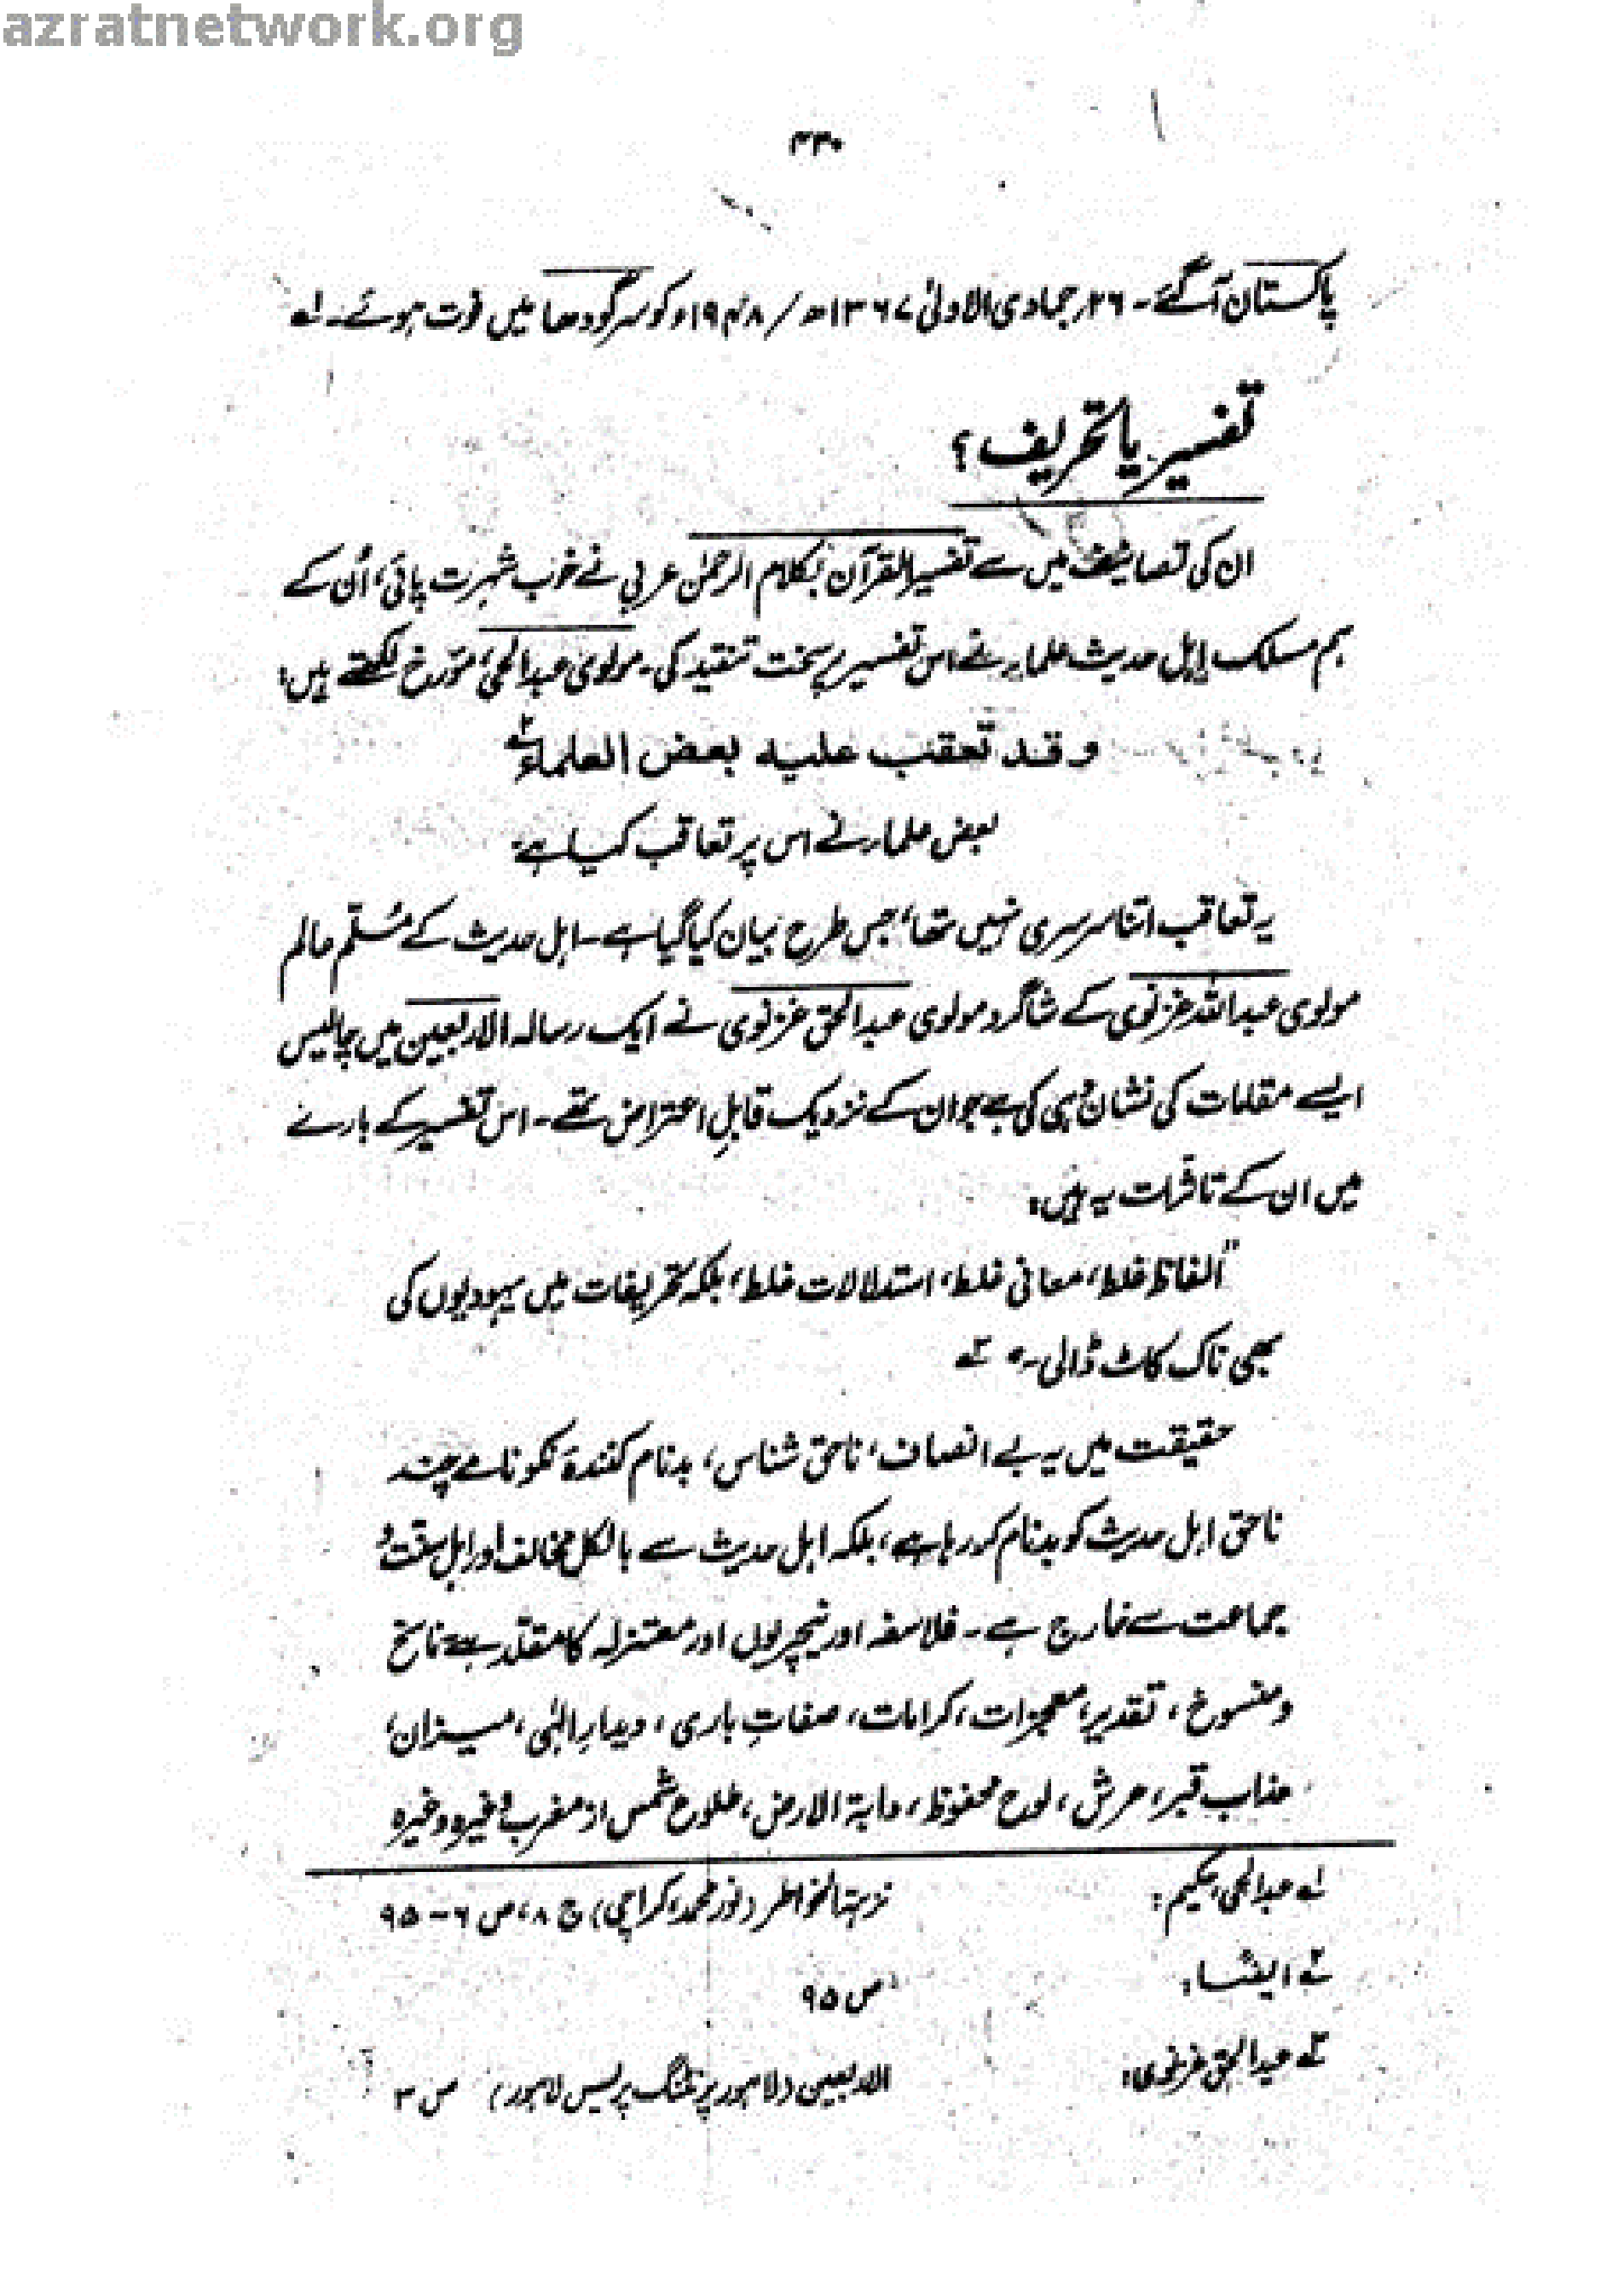 azratnetwork.org
۴۳۰
پاکستان آگئے۔ ۲۶ر جمادی الاولیٰ ۱۳۶۷ھ / ۱۹۴۸ء کو سرگودھا میں فوت ہوئے۔ لے
تفسیر یا تحریف؟
ان کی تصانیف میں سے تفسیر القرآن بکلام الرحمٰن عربی نے خوب شہرت پائی، اُن کے
ہم مسلک اہل حدیث علماء نے اس تفسیر پر سخت تنقید کی۔ مولوی عبدالحی، مؤرخ لکھتے ہیں:
وقد تعقب عليه بعض العلماء ۲ے
بعض علماء نے اس پر تعاقب کیا ہے،
یہ تعاقب اتنا سرسری نہیں تھا، جس طرح بیان کیا گیا ہے۔ اہل حدیث کے مُسلّم عالم
مولوی عبداللہ غزنوی کے شاگرد مولوی عبدالحق غزنوی نے ایک رسالہ الاربعین میں چالیس
ایسے مقامات کی نشان دہی کی ہے جو ان کے نزدیک قابلِ اعتراض تھے۔ اس تفسیر کے بارے
میں ان کے تاثرات یہ ہیں:
"الفاظ غلط، معانی غلط، استدلالات غلط، بلکہ تحریفات میں یہودیوں کی
بھی ناک کاٹ ڈالی۔" ۳ے
حقیقت میں یہ بے انصاف، ناحق شناس، بدنام کنندۂ نکونامے چند
ناحق اہل حدیث کو بدنام کر رہا ہے، بلکہ اہل حدیث سے بالکل مخالف اور اہل سنت و
جماعت سے خارج ہے۔ فلاسفہ اور نیچریوں اور معتزلہ کا مقلد ہے ناسخ
و منسوخ، تقدیر، معجزات، کرامات، صفاتِ باری، دیدارِ الٰہی، میزان،
عذاب قبر، عرش، لوح محفوظ، دابۃ الارض، طلوع شمس از مغرب وغیرہ وغیرہ
لے عبدالحی، حکیم: نزہۃ الخواطر (نور محمد، کراچی) ج ۸، ص ۶-۹۵
۲ے ایضاً: ص ۹۵
۳ے عبدالحق غزنوی: الاربعین (لاہور پرنٹنگ پریس لاہور) ص ۳